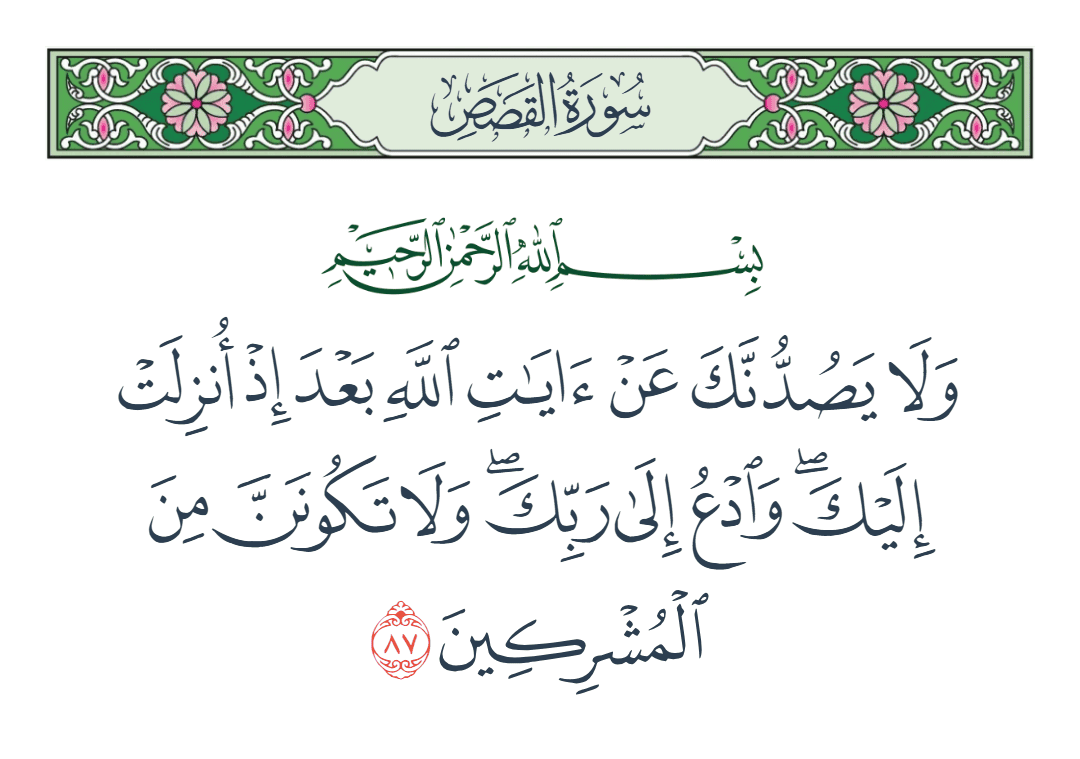 سُورَةُ القَصَصِ
بِسْمِ ٱللَّهِ ٱلرَّحْمَٰنِ ٱلرَّحِيمِ
وَلَا يَصُدُّنَّكَ عَنْ ءَايَـٰتِ ٱللَّهِ بَعْدَ إِذْ أُنزِلَتْ
إِلَيْكَ ۖ وَٱدْعُ إِلَىٰ رَبِّكَ ۖ وَلَا تَكُونَنَّ مِنَ
ٱلْمُشْرِكِينَ ٨٧